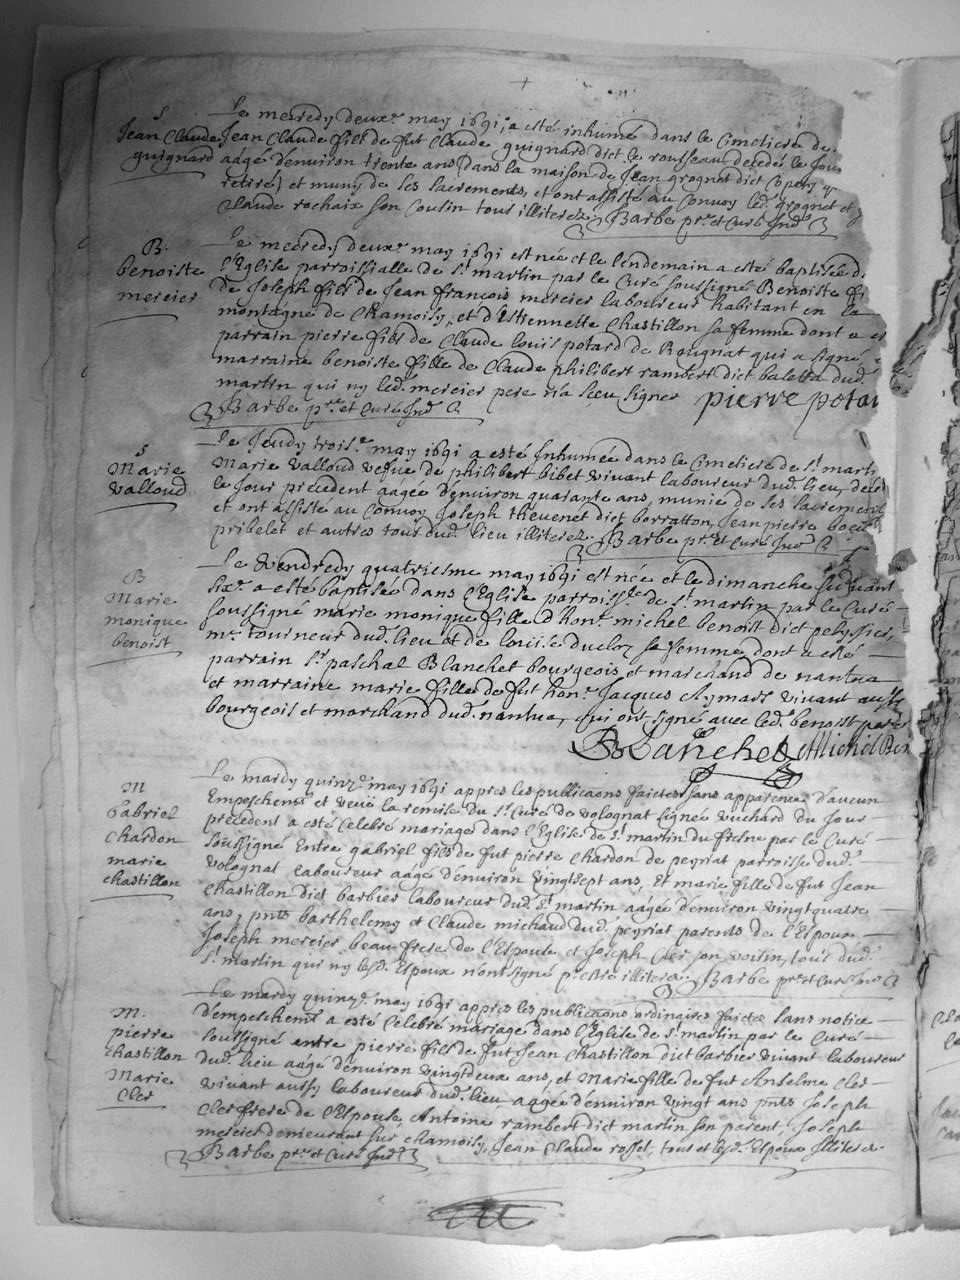 S
Jean Claude
guignard
Le mercredy deuxe. may 1691, a esté inhumé dans le Cimetiere de
Jean Claude fils de fut Claude guignard dict le rousseau decedé le Jour
aagé d'environ trente ans (dans la maison de Jean grognet dict
retiré) et muny de ses sacrements, et ont assisté au Convoy led. grognet et
Claude rochaix son Cousin tous illiterez. Barbe ptre et Curé Indᵉ
B.
benoiste
mercier
Le mecredy deuxe. may 1691 est née et le lendemain a esté baptisée d
l'Eglise parroissialle de St martin par le Curé soussigné Benoiste fi
de Joseph fils de Jean françois mercier laboureur habitant en la
montagne de Chamoisy, et d'Estiennette Chastillon sa femme dont a e
parrain pierre fils de Claude louis potard de Rougnat qui a signé,
marraine benoiste fille de Claude philibert rambert dict baletta dud.
martin qui ny led. mercier pere n'a sceu signer pierre potar
Barbe ptre et Curé Indᵉ
S
Marie
valloud
Le Jeudy troise. may 1691 a esté Inhumée dans le Cimetiere de St marti
Marie valloud vefue de philibert bibet vivant laboureur dud. lieu, deced
le Jour precedent aagée d'environ quarante ans, munie de ses sacrements
et ont assisté au Convoy Joseph thevenet dict borratton, Jean pierre
pribelet et autres tous dud. lieu illiterez. Barbe ptre et Curé Indᵉ
B
Marie
monique
benoist
Le Vendredy quatriesme may 1691 est née et le dimanche suivant
sixe. a esté baptisée dans l'Eglise parroissle de St martin par le Curé
soussigné marie monique fille d'hone. michel benoist dict pelyssier,
me. tourneur dud. lieu et de louise duclos sa femme, dont a esté
parrain sr. paschal Blanchet bourgeois et marchand de nantua
et marraine marie fille de fut hone. Jacques Aymars vivant aussy
bourgeois et marchand dud. nantua, qui ont signé avec led. benoist pere
Blanchet Michel Ben
M
Gabriel
Chardon
marie
Chastillon
Le mardy quinze. may 1691 appres les publicaons faictes sans apparence d'aucun
Empeschemt et veüe la remise du sr. Curé de volognat signée vuchard du Jour
precedent a esté Celebré mariage dans l'Eglise de St martin du fresne par le Curé
soussigné Entre gabriel fils de fut pierre Chardon de peyriat parroisse dud.
volognat laboureur aagé d'environ vingtsept ans, Et marie fille de fut Jean
Chastillon dict barbier laboureur dud. St martin aagée d'environ vingtquatre
ans, pnts barthelemy et Claude michaud dud. peyriat parents de l'Espoux
Joseph mercier beau frere de l'Espouse et Joseph Cler son voisin, tous dud.
St martin qui ny lesd. Espoux n'ont signé pr. estre illiterez. Barbe ptre et Curé Indᵉ
M.
pierre
Chastillon
Marie
Cler
Le mardy quinze. may 1691 appres les publicaons ordinaires faictes sans notice
d'empeschemt a esté Celebré mariage dans l'Eglise de St martin par le Curé
soussigné entre pierre fils de fut Jean Chastillon dict barbier vivant laboureur
dud. lieu aagé d'environ vingtdeux ans, et Marie fille de fut Anselme Cler
vivant aussy laboureur dud. lieu aagée d'environ vingt ans pnts Joseph
Cler frere de l'Espouse, Antoine rambert dict martin son parent, Joseph
mercier demeurant sur Chamoisy, Jean Claude rosset, tous et lesd. Espoux Illiterez.
Barbe ptre et Curé Indᵉ